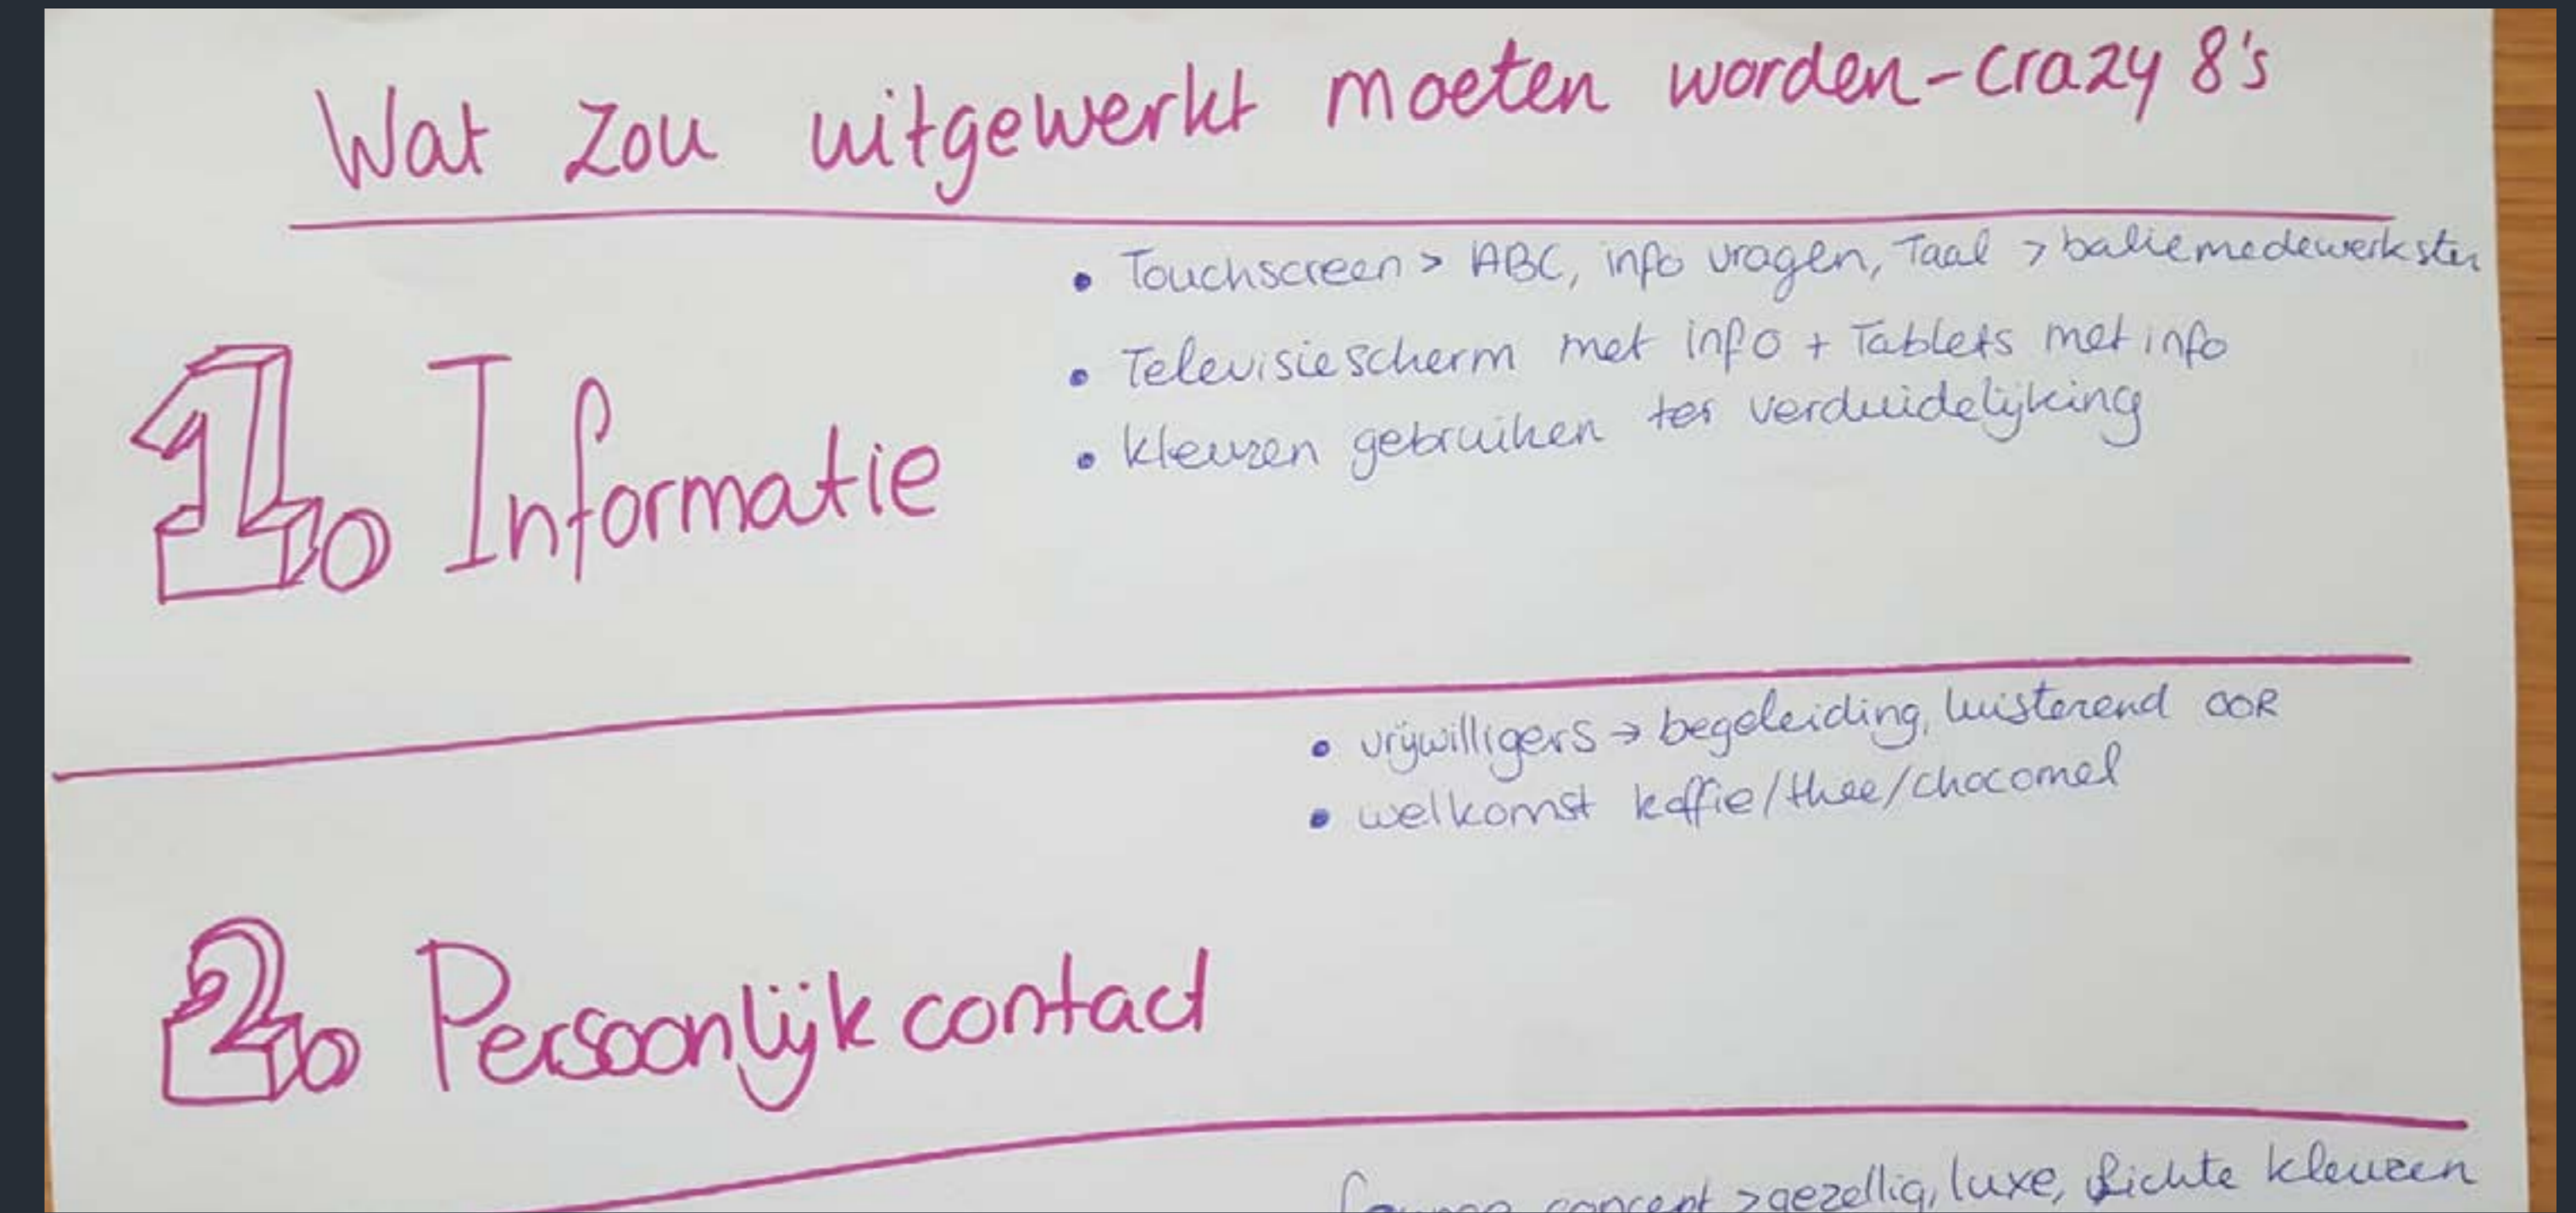 Wat zou uitgewerkt moeten worden-crazy 8's
• Touchscreen > ABC, info vragen, Taal > baliemedewerkster
• Televisiescherm met info + Tablets met info
• kleuren gebruiken ter verduidelijking
1. Informatie
• vrijwilligers → begeleiding, luisterend OOR
• welkomst koffie/thee/chocomel
2. Persoonlijk contact
concept > gezellig, luxe, lichte kleuren